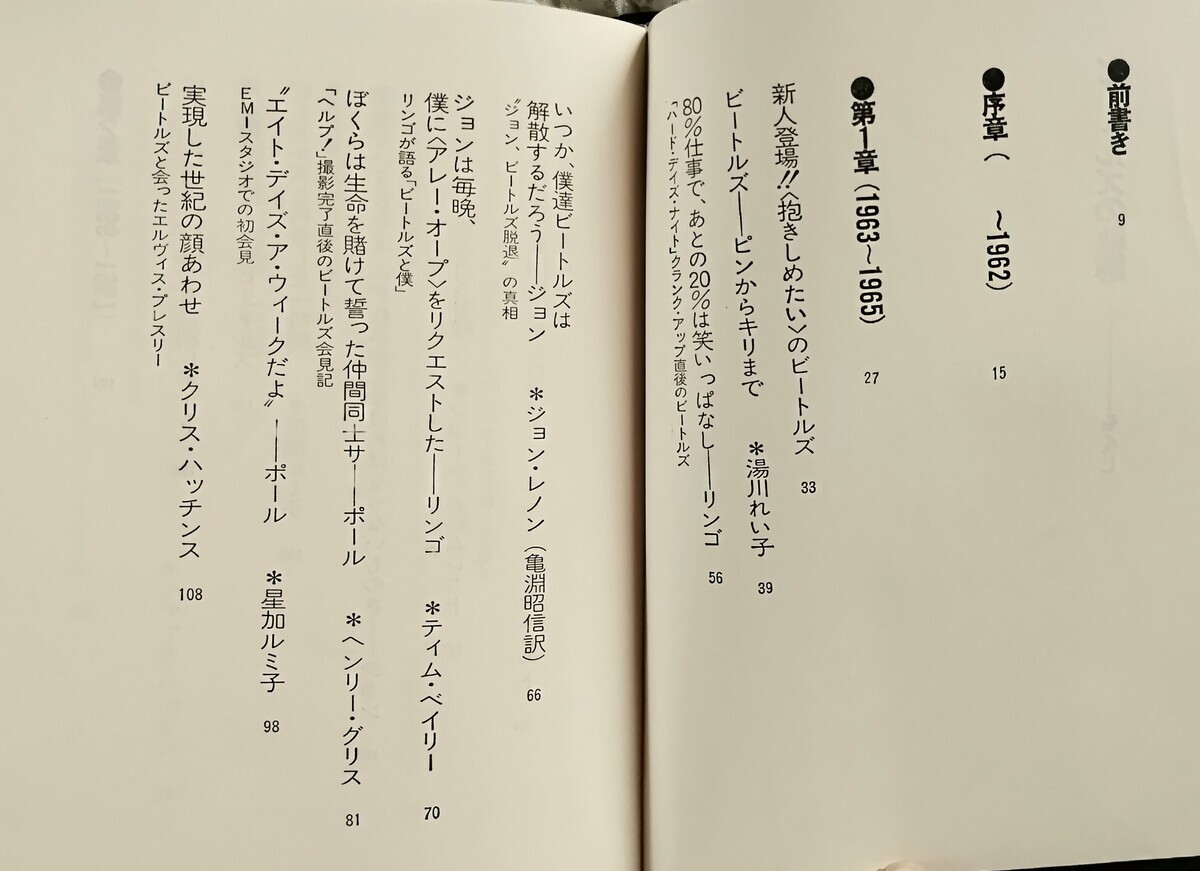 ●前書き 9
●序章( ~1962) 15
●第1章(1963~1965) 27
新人登場!!〈抱きしめたい〉のビートルズ 33
ビートルズ──ピンからキリまで *湯川れい子 39
80%仕事で、あとの20%は笑いっぱなし──リンゴ 56
「ハード・デイズ・ナイト」クランク・アップ直後のビートルズ
いつか、僕達ビートルズは
解散するだろう──ジョン *ジョン・レノン(亀淵昭信訳) 66
〝ジョン、ビートルズ脱退〟の真相
ジョンは毎晩、
僕に〈アレー・オープ〉をリクエストした──リンゴ *ティム・ベイリー 70
リンゴが語る「ビートルズと僕」
ぼくらは生命を賭けて誓った仲間同士サ──ポール *ヘンリー・グリス 81
「ヘルプ!」撮影完了直後のビートルズ会見記
〝エイト・デイズ・ア・ウィークだよ〟──ポール *星加ルミ子 98
EMIスタジオでの初会見
実現した世紀の顔あわせ *クリス・ハッチンス 108
ビートルズと会ったエルヴィス・プレスリー